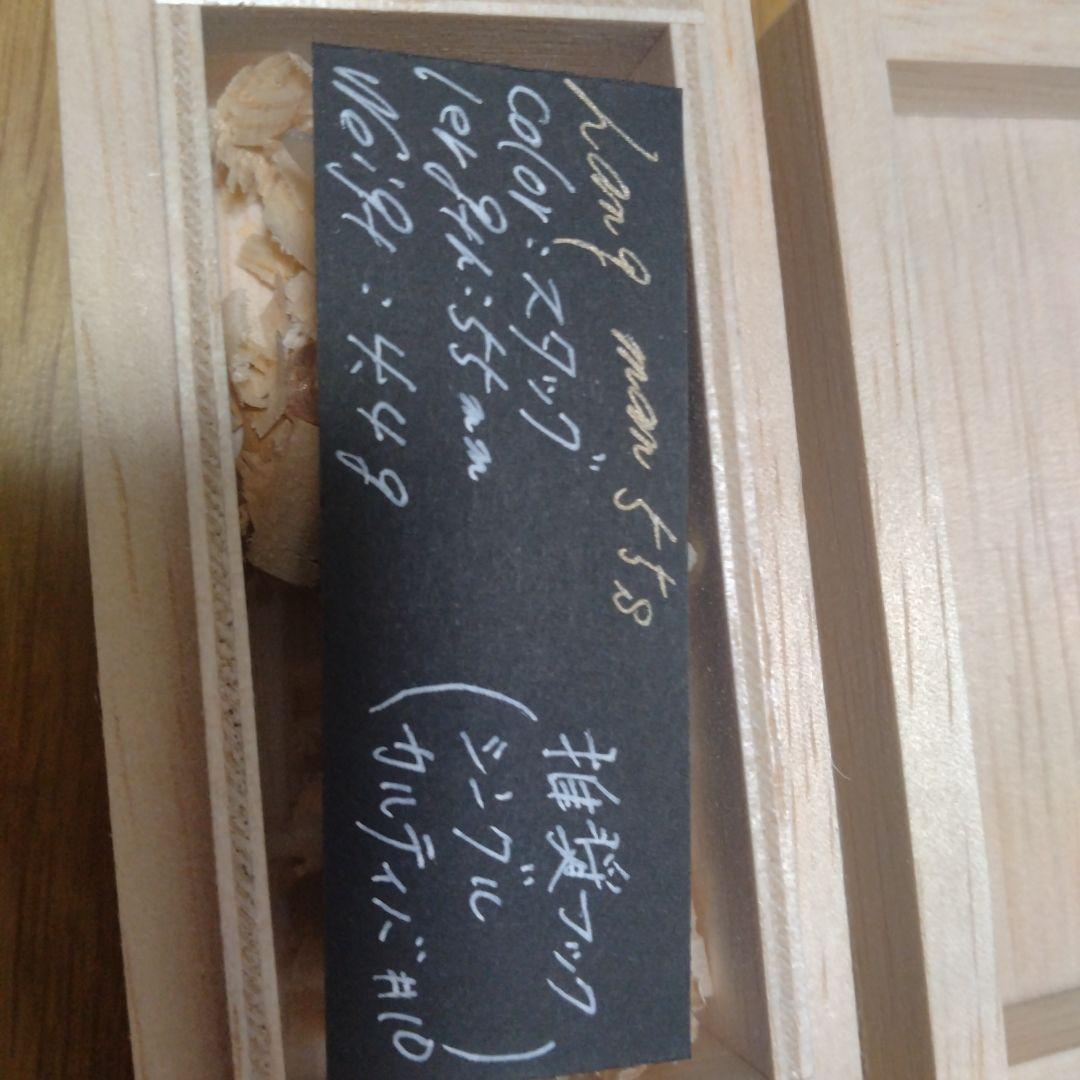 hang man 55s
color:スタッグ
lergth:55mm
Weight:4.4g
推奨フック
(シングル
カルティバ #10)